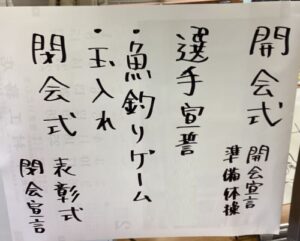 開会式
開会宣言
準備体操
選手宣誓
・魚釣りゲーム
・玉入れ
閉会式
表彰式
閉会宣言